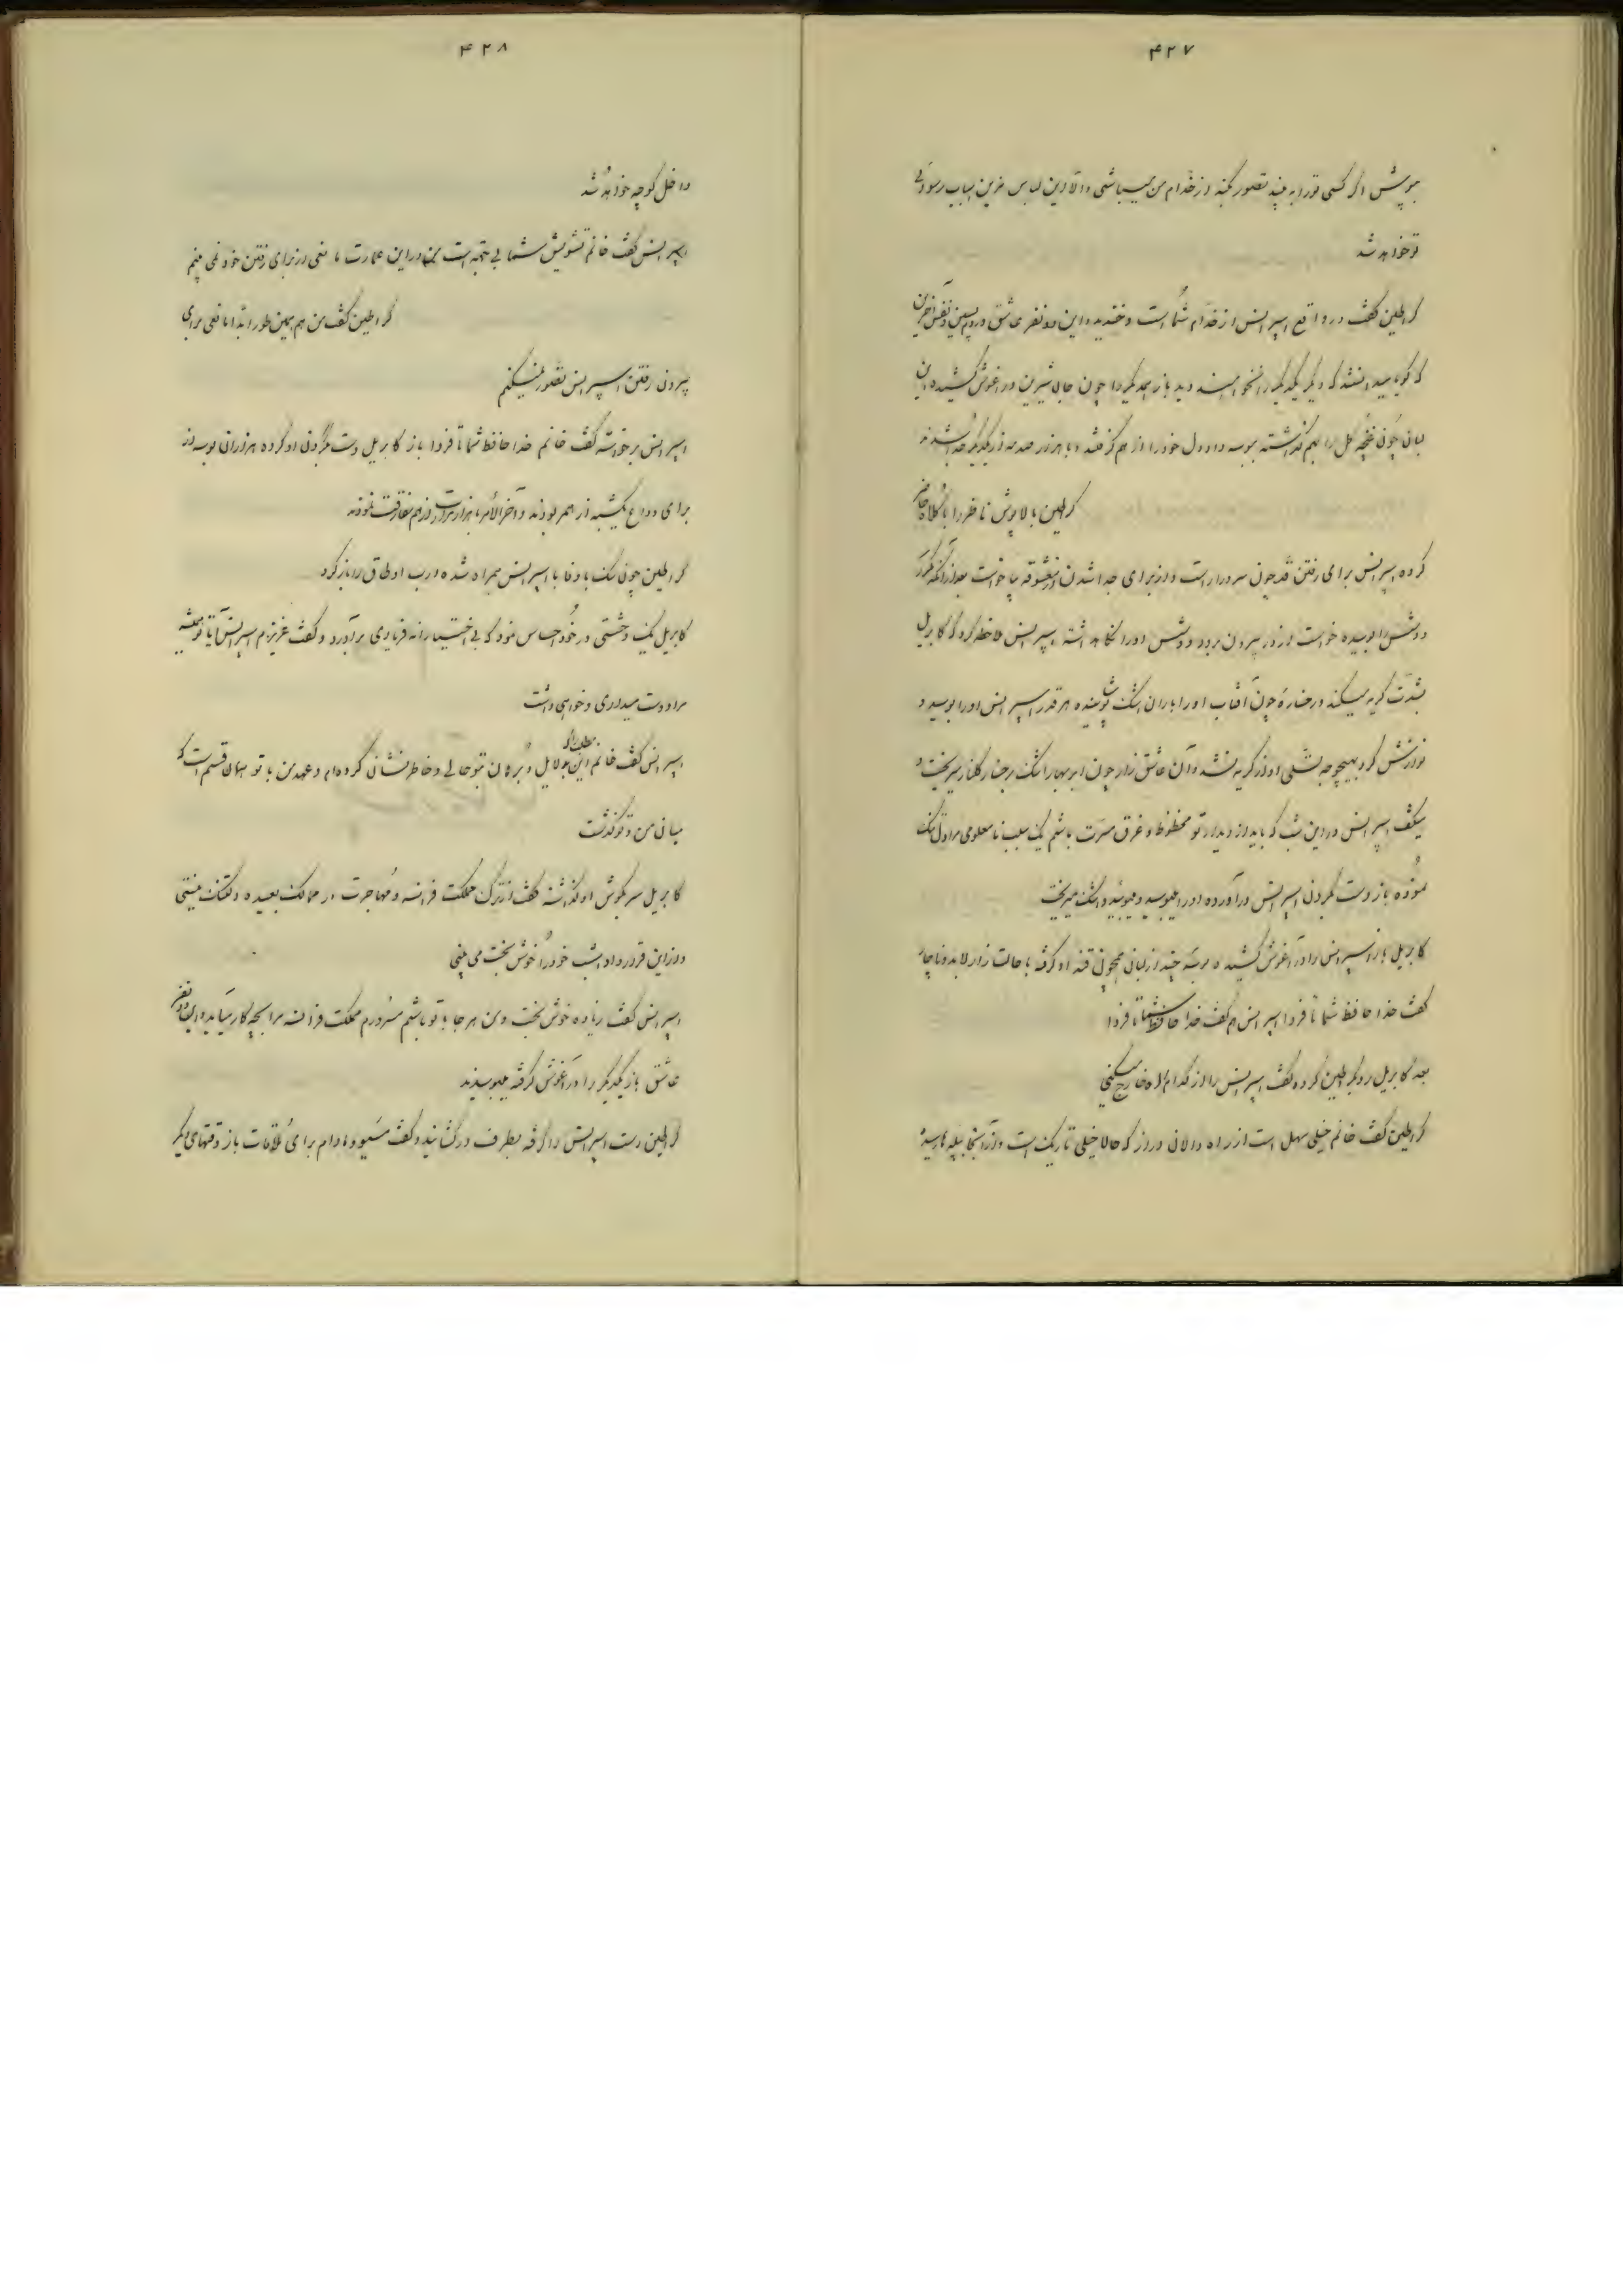 ۴۲۷
بپوش اگر کسی تو را به بیند تصور کند از خدام من میباشی والا این لباس مزین اسباب رسوائی
تو خواهد شد
گراطین گفت در واقع اسپرانس از خدام شما است و خندید و این دو نفر عاشق
که گویا میدانستند که دیگر یکدیگر را نخواهند دید باز یکدیگر را چون جان شیرین در آغوش کشیده
لبان چون غنچه گل را بهم گذاشته بوسه داد دل خود را از هم گرفتند و با هزار صدمه از یکدیگر جدا شدند
گراطین بالاپوش ناظر را با کلاه حاضر
کرده اسپرانس برای رفتن قد چون سرو را راست و از برای جدا شدن از معشوقه بپا خواست بعد از آنکه مکرر
دستش را بوسیده خواست از در بیرون برود دستش او را نگاهداشته اسپرانس ملاحظه کرد که گابریل
بشدت گریه میکند و رخساره چون آفتاب او را باران اشک پوشیده هر قدر اسپرانس او را بوسید و
نوازش کرد بهیچوجه تسلی او از گریه نشد و آن عاشق زار چون ابر بهار اشک بر رخسار گلنار میریخت و
میگفت اسپرانس در این شب که باید از دیدار تو محظوظ و غرق مسرت باشم یک سبب نامعلومی مرا دل تنگ
نموده باز دست بگردن اسپرانس در آورده او را میبوسید و میبوئید و اشک میریخت
گابریل باز اسپرانس را در آغوش کشیده بوسه چند از لبان همچون قند او گرفته با حالت زار لابد و ناچار
گفت خدا حافظ شما تا فردا اسپرانس هم گفت خدا حافظ شما تا فردا
بعد گابریل رو بگراطین کرده گفت اسپرانس را از کدام راه خارج میکنی
گراطین گفت خانم خیلی سهل است از راه دالان دراز که حالا خیلی تاریک است و از آنجا به پله ها رسیده
۴۲۸
داخل کوچه خواهد شد
اسپرانس گفت خانم تشویش شما بی جهة است من در این عمارت مانعی از برای رفتن خود نمی بینم
گراطین گفت من هم همین طور ابدا مانعی برای
بیرون رفتن اسپرانس تصور نمیکنم
اسپرانس برخواسته گفت خانم خدا حافظ شما تا فردا باز گابریل دست بگردن او کرده هزاران بوسه از
برای وداع یکشبه از همر بودند و آخرالأمر با هزار مرارت از هم مفارقت نمودند
گراطین چون سگ با وفا با اسپرانس همراه شده درب اوطاق را باز کرد
گابریل یک وحشتی در خود احساس نمود که بی اختیارانه فریادی برآورد و گفت عزیزم اسپرانس آیا تو همیشه
مرا دوست میداری و خواهی داشت
اسپرانس گفت خانم این مطلب را که بدلایل و برهان بتو حالی و خاطر نشان کرده ام و عهد من با تو همان قسم است که
میان من و تو گذشت
گابریل سر بگوش او گذاشته گفت از ترک مملکت فرانسه و مهاجرت در ممالک بعیده دلتنگ نیستی
و از این قرارداد امشب خود را خوش بخت می بینی
اسپرانس گفت زیاده خوش بخت و من هر جا با تو باشم مسرورم مملکت فرانسه مرا بچه کار میآید و این دو نفر
عاشق باز یکدیگر را در آغوش گرفته میبوسیدند
گراطین دست اسپرانس را گرفته بطرف در کشانید و گفت مسیو و مادام برای ملاقات باز وقتهای دیگر